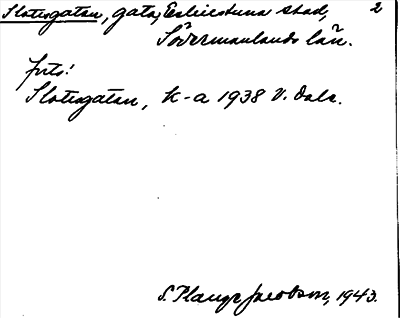 Slottsgatan, gata, Eskilstuna stad, 2
Södermanlands län.
fots:
Slottsgatan, K-a 1938 V. Dalr.
S. Plaugr Jacobson, 1943.